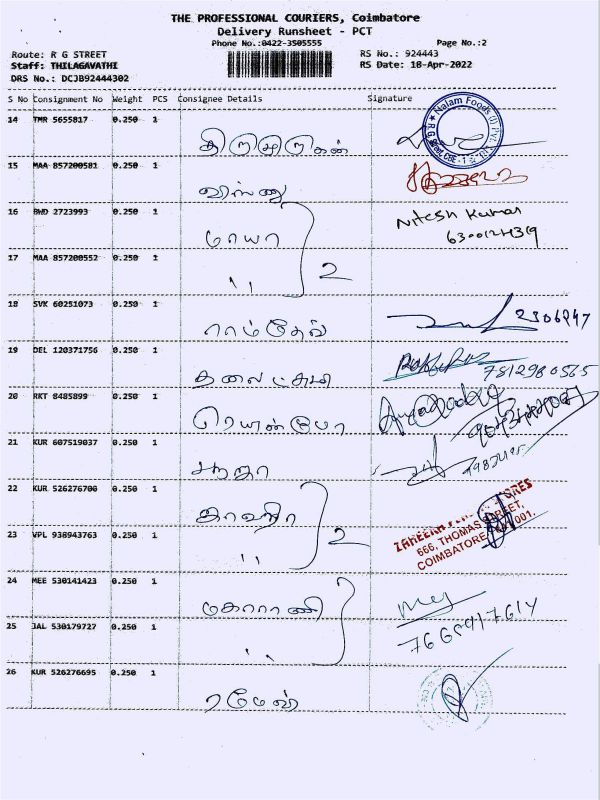 THE PROFESSIONAL COURIERS, Coimbatore
Delivery Runsheet - PCT
Phone No.:0422-3505555 Page No.:2
Route: R G STREET RS No.: 924443
Staff: THILAGAVATHI RS Date: 18-Apr-2022
DRS No.: DCJB92444302
S No Consignment No Weight PCS Consignee Details Signature
14 TMR 5655817 0.250 1 திருமுருகன்
Nalam Foods (I) Pvt.
R G Street, CBE - 1
15 MAA 857200581 0.250 1 விஸ்ணு
16 BWD 2723993 0.250 1 மாயா Nitesh Kumar
17 MAA 857200552 0.250 1 ,, 2
18 SVK 60251073 0.250 1 ராம்தேவ் 2306947
19 DEL 120371756 0.250 1 7812980565
20 RKT 8485899 0.250 1
21 KUR 607519037 0.250 1
22 KUR 526276700 0.250 1 காவேரி
23 VPL 938943763 0.250 1 ,, 2
666, THOMAS STREET,
COIMBATORE 001.
24 MEE 530141423 0.250 1 மகாராணி
25 JAL 530179727 0.250 1 ,,
26 KUR 526276695 0.250 1 ரமேஷ்